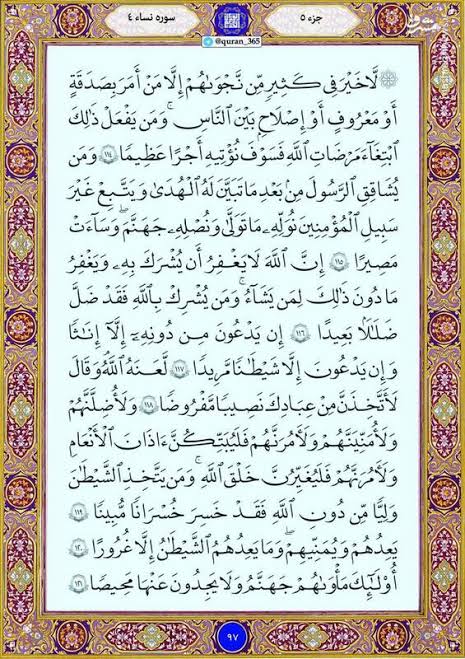 جزء ۵
سوره نساء ۴
@quran_365
۞ لَّا خَيْرَ فِي كَثِيرٍ مِّن نَّجْوَىٰهُمْ إِلَّا مَنْ أَمَرَ بِصَدَقَةٍ
أَوْ مَعْرُوفٍ أَوْ إِصْلَٰحٍ بَيْنَ ٱلنَّاسِ ۚ وَمَن يَفْعَلْ ذَٰلِكَ
ٱبْتِغَآءَ مَرْضَاتِ ٱللَّهِ فَسَوْفَ نُؤْتِيهِ أَجْرًا عَظِيمًا ١١٤ وَمَن
يُشَاقِقِ ٱلرَّسُولَ مِنۢ بَعْدِ مَا تَبَيَّنَ لَهُ ٱلْهُدَىٰ وَيَتَّبِعْ غَيْرَ
سَبِيلِ ٱلْمُؤْمِنِينَ نُوَلِّهِۦ مَا تَوَلَّىٰ وَنُصْلِهِۦ جَهَنَّمَ ۖ وَسَآءَتْ
مَصِيرًا ١١٥ إِنَّ ٱللَّهَ لَا يَغْفِرُ أَن يُشْرَكَ بِهِۦ وَيَغْفِرُ
مَا دُونَ ذَٰلِكَ لِمَن يَشَآءُ ۚ وَمَن يُشْرِكْ بِٱللَّهِ فَقَدْ ضَلَّ
ضَلَٰلًۢا بَعِيدًا ١١٦ إِن يَدْعُونَ مِن دُونِهِۦٓ إِلَّآ إِنَٰثًا
وَإِن يَدْعُونَ إِلَّا شَيْطَٰنًا مَّرِيدًا ١١٧ لَّعَنَهُ ٱللَّهُ ۘ وَقَالَ
لَأَتَّخِذَنَّ مِنْ عِبَادِكَ نَصِيبًا مَّفْرُوضًا ١١٨ وَلَأُضِلَّنَّهُمْ
وَلَأُمَنِّيَنَّهُمْ وَلَءَامُرَنَّهُمْ فَلَيُبَتِّكُنَّ ءَاذَانَ ٱلْأَنْعَٰمِ
وَلَءَامُرَنَّهُمْ فَلَيُغَيِّرُنَّ خَلْقَ ٱللَّهِ ۚ وَمَن يَتَّخِذِ ٱلشَّيْطَٰنَ
وَلِيًّا مِّن دُونِ ٱللَّهِ فَقَدْ خَسِرَ خُسْرَانًا مُّبِينًا ١١٩
يَعِدُهُمْ وَيُمَنِّيهِمْ ۖ وَمَا يَعِدُهُمُ ٱلشَّيْطَٰنُ إِلَّا غُرُورًا ١٢٠
أُو۟لَٰٓئِكَ مَأْوَىٰهُمْ جَهَنَّمُ وَلَا يَجِدُونَ عَنْهَا مَحِيصًا ١٢١
۹۷